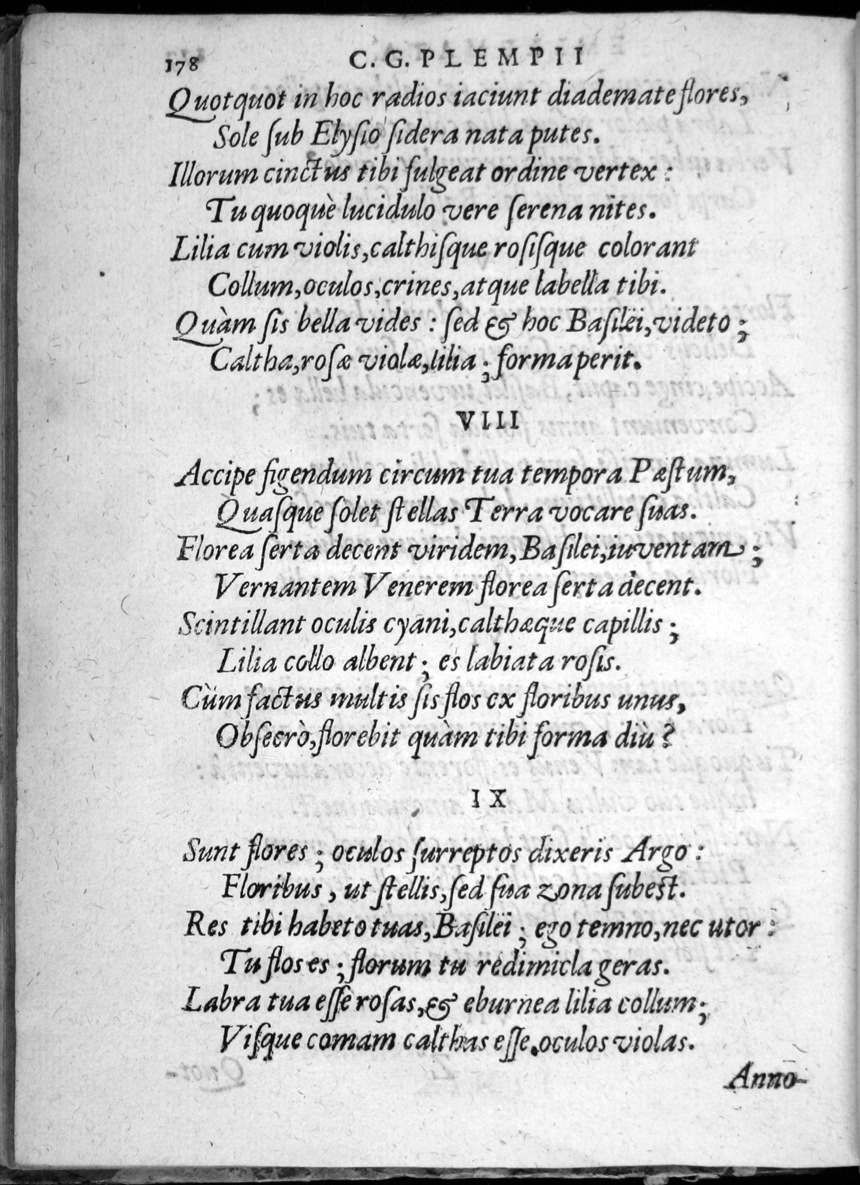 178 C. G. PLEMPII
Quotquot in hoc radios iaciunt diademate flores,
Sole ſub Elyſio ſidera nata putes.
Illorum cinctus tibi fulgeat ordine vertex :
Tu quoquè lucidulo vere ſerena nites.
Lilia cum violis, calthiſque roſiſque colorant
Collum, oculos, crines, atque labella tibi.
Quàm ſis bella vides : ſed & hoc Baſilëi, videto ;
Caltha, roſæ violæ, lilia ; forma perit.
VIII
Accipe figendum circum tua tempora Pæſtum,
Quaſque ſolet ſtellas Terra vocare ſuas.
Florea ſerta decent viridem, Baſilei, iuventam ;
Vernantem Venerem florea ſerta decent.
Scintillant oculis cyani, calthæque capillis ;
Lilia collo albent ; es labiata roſis.
Cùm factus multis ſis flos ex floribus unus,
Obſecrò, florebit quàm tibi forma diù ?
IX
Sunt flores ; oculos ſurreptos dixeris Argo :
Floribus, ut ſtellis, ſed ſua zona ſubeſt.
Res tibi habeto tuas, Baſilëi ; ego temno, nec utor :
Tu flos es ; florum tu redimicla geras.
Labra tua eſſe roſas, & eburnea lilia collum ;
Viſque comam calthas eſſe, oculos violas.
Anno-